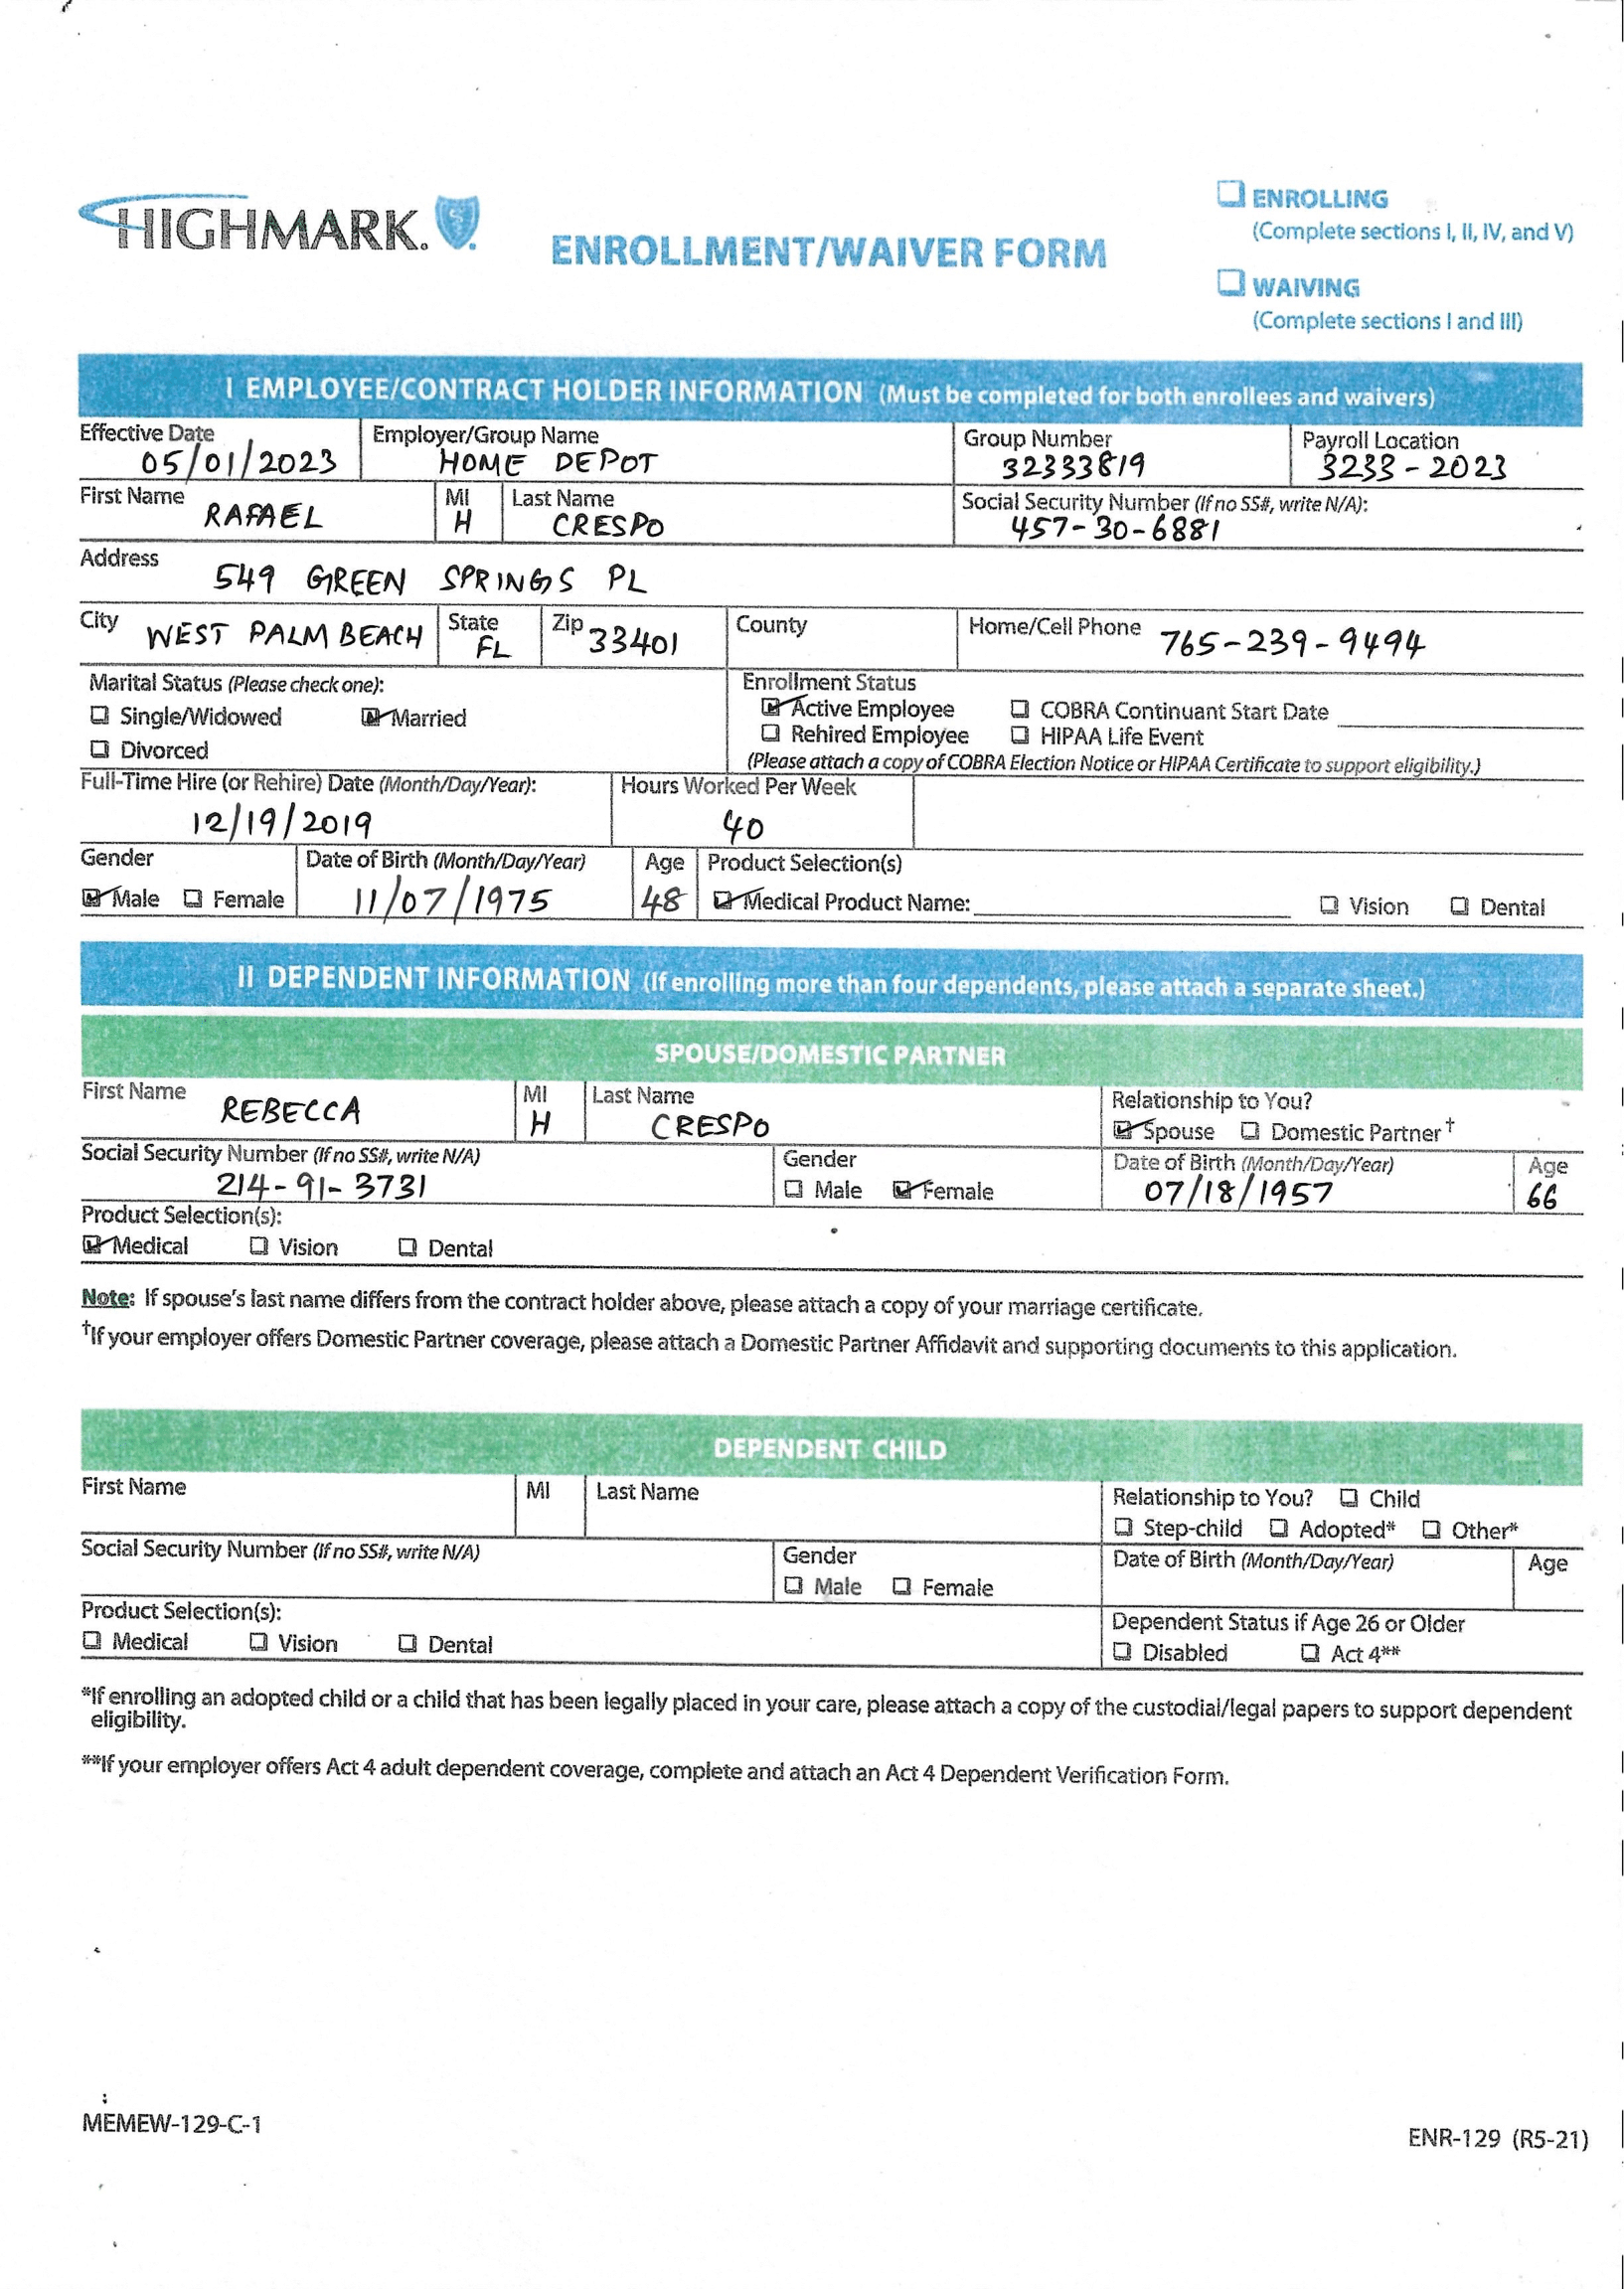 HIGHMARK.
ENROLLMENT/WAIVER FORM
❑ ENROLLING
(Complete sections I, II, IV, and V)
❑ WAIVING
(Complete sections I and III)
I EMPLOYEE/CONTRACT HOLDER INFORMATION (Must be completed for both enrollees and waivers)
Effective Date Employer/Group Name Group Number Payroll Location
05/01/2023 HOME DEPOT 32333819 3233-2023
First Name MI Last Name Social Security Number (If no SS#, write N/A):
RAFAEL H CRESPO 457-30-6881
Address
549 GREEN SPRINGS PL
City WEST PALM BEACH State FL Zip 33401 County Home/Cell Phone 765-239-9494
Marital Status (Please check one): Enrollment Status
❑ Single/Widowed ☑ Married ☑ Active Employee ❑ COBRA Continuant Start Date
❑ Divorced ❑ Rehired Employee ❑ HIPAA Life Event
(Please attach a copy of COBRA Election Notice or HIPAA Certificate to support eligibility.)
Full-Time Hire (or Rehire) Date (Month/Day/Year): Hours Worked Per Week
12/19/2019 40
Gender Date of Birth (Month/Day/Year) Age Product Selection(s)
☑ Male ❑ Female 11/07/1975 48 ☑ Medical Product Name: ❑ Vision ❑ Dental
II DEPENDENT INFORMATION (If enrolling more than four dependents, please attach a separate sheet.)
SPOUSE/DOMESTIC PARTNER
First Name MI Last Name Relationship to You?
REBECCA H CRESPO ☑ Spouse ❑ Domestic Partner†
Social Security Number (If no SS#, write N/A) Gender Date of Birth (Month/Day/Year) Age
214-91-3731 ❑ Male ☑ Female 07/18/1957 66
Product Selection(s):
☑ Medical ❑ Vision ❑ Dental
Note: If spouse's last name differs from the contract holder above, please attach a copy of your marriage certificate.
†If your employer offers Domestic Partner coverage, please attach a Domestic Partner Affidavit and supporting documents to this application.
DEPENDENT CHILD
First Name MI Last Name Relationship to You? ❑ Child
❑ Step-child ❑ Adopted* ❑ Other*
Social Security Number (If no SS#, write N/A) Gender Date of Birth (Month/Day/Year) Age
❑ Male ❑ Female
Product Selection(s): Dependent Status if Age 26 or Older
❑ Medical ❑ Vision ❑ Dental ❑ Disabled ❑ Act 4**
*If enrolling an adopted child or a child that has been legally placed in your care, please attach a copy of the custodial/legal papers to support dependent
eligibility.
**If your employer offers Act 4 adult dependent coverage, complete and attach an Act 4 Dependent Verification Form.
MEMEW-129-C-1
ENR-129 (R5-21)